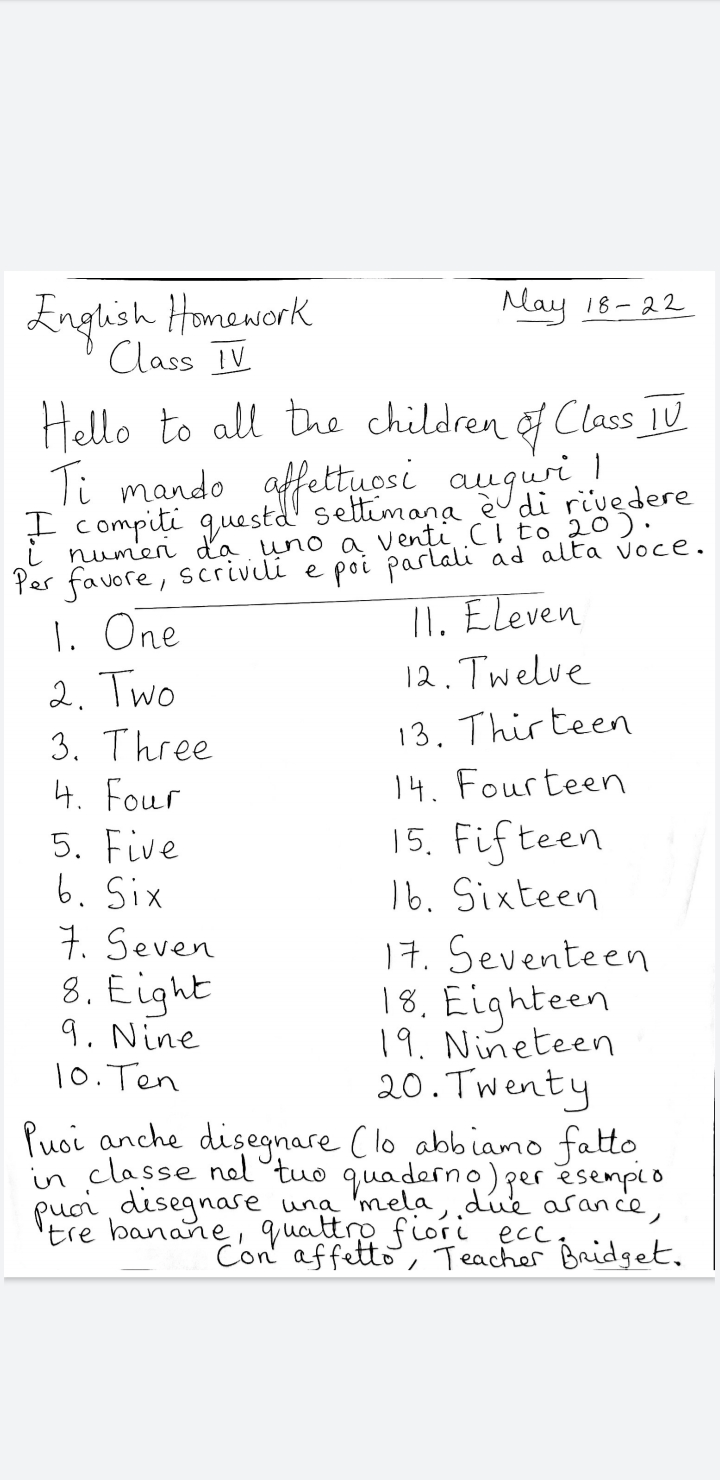 English Homework May 18-22
Class IV
Hello to all the children of Class IV
Ti mando affettuosi auguri!
I compiti questa settimana è di rivedere
i numeri da uno a venti (1 to 20).
Per favore, scrivili e poi parlali ad alta voce.
1. One
2. Two
3. Three
4. Four
5. Five
6. Six
7. Seven
8. Eight
9. Nine
10. Ten
11. Eleven
12. Twelve
13. Thirteen
14. Fourteen
15. Fifteen
16. Sixteen
17. Seventeen
18. Eighteen
19. Nineteen
20. Twenty
Puoi anche disegnare (lo abbiamo fatto
in classe nel tuo quaderno) per esempio
puoi disegnare una mela, due arance,
tre banane, quattro fiori ecc.
Con affetto, Teacher Bridget.